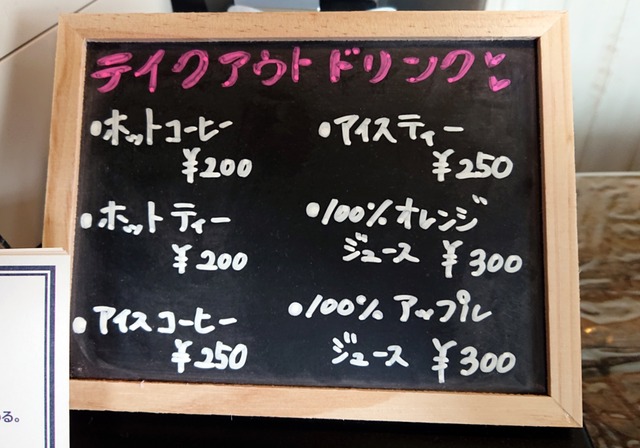 テイクアウトドリンク
•ホットコーヒー
¥200
•ホットティー
¥200
•アイスコーヒー
¥250
•アイスティー
¥250
•100%オレンジ
ジュース ¥300
•100%アップル
ジュース ¥300
る。